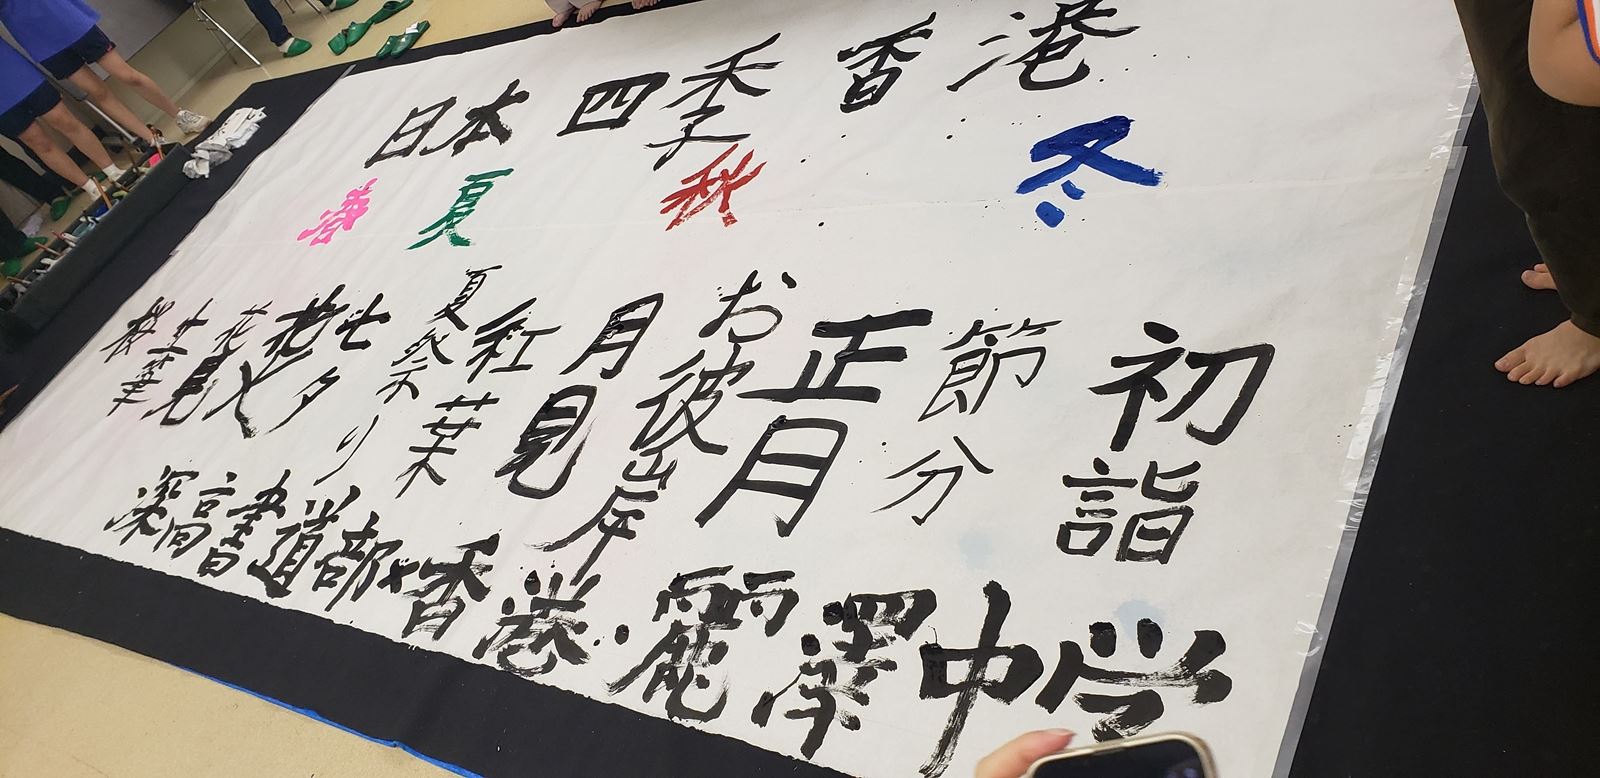 日本 四季 香港
春 夏 秋 冬
桜
土筆
花見
花火
七夕
夏祭り
紅葉
月見
お彼岸
正月
節分
初詣
深高書道部×香港・麗澤中学